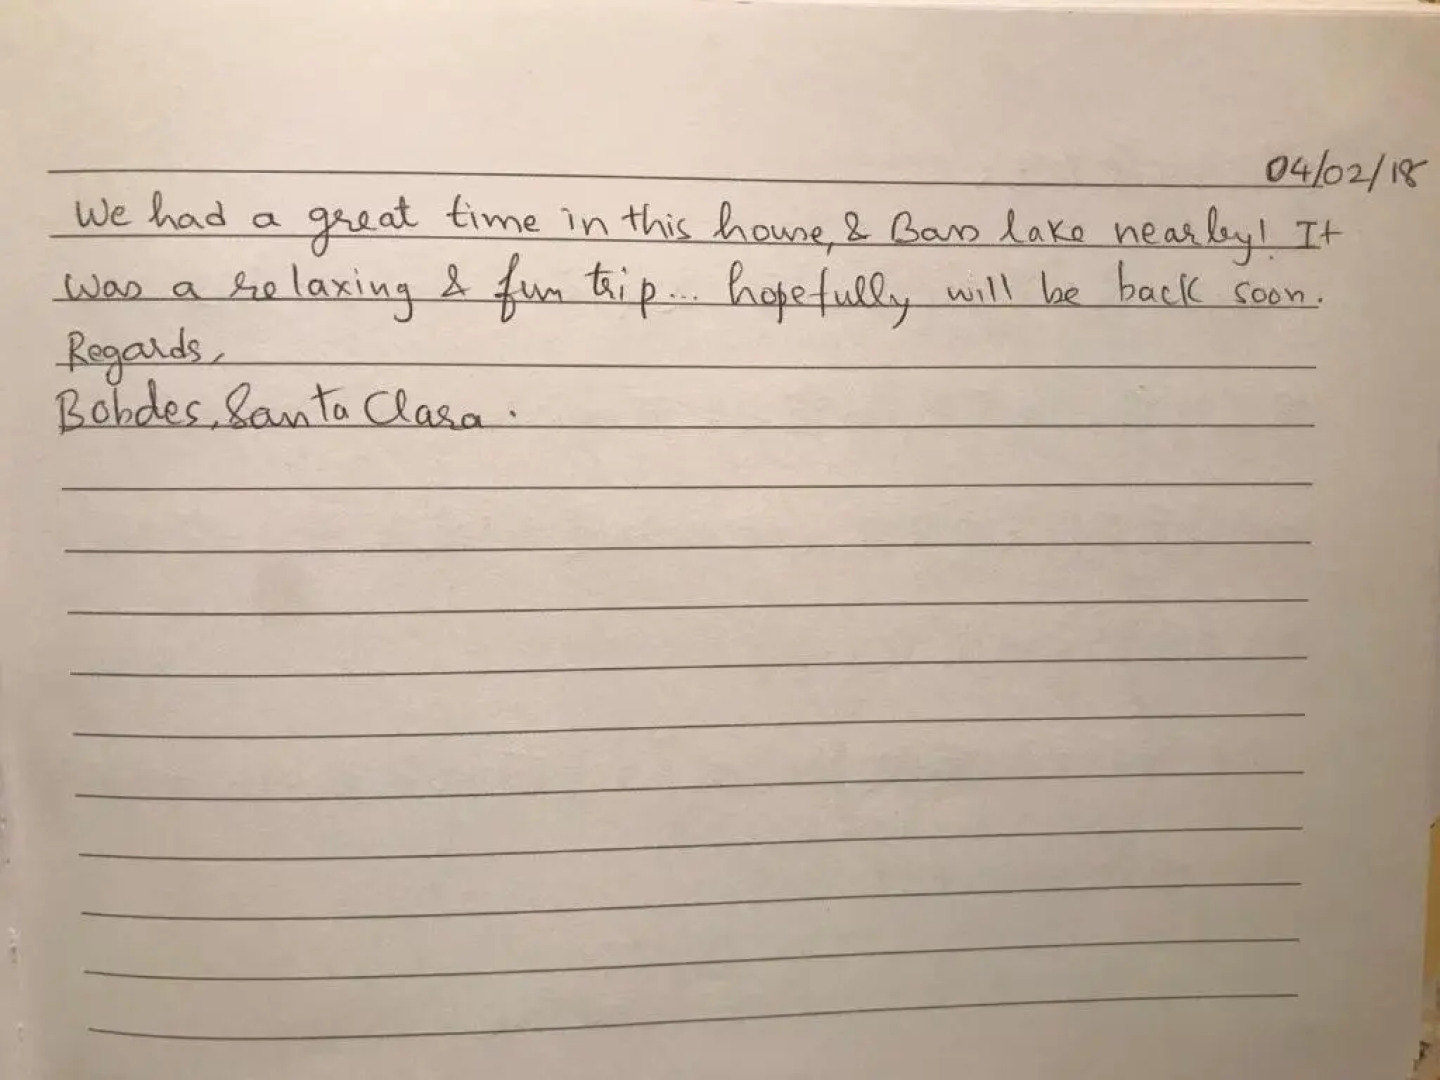 04/02/18
We had a great time in this house, & Bass lake nearby! It
was a relaxing & fun trip... hopefully will be back soon.
Regards,
Bobdes, Santa Clara.